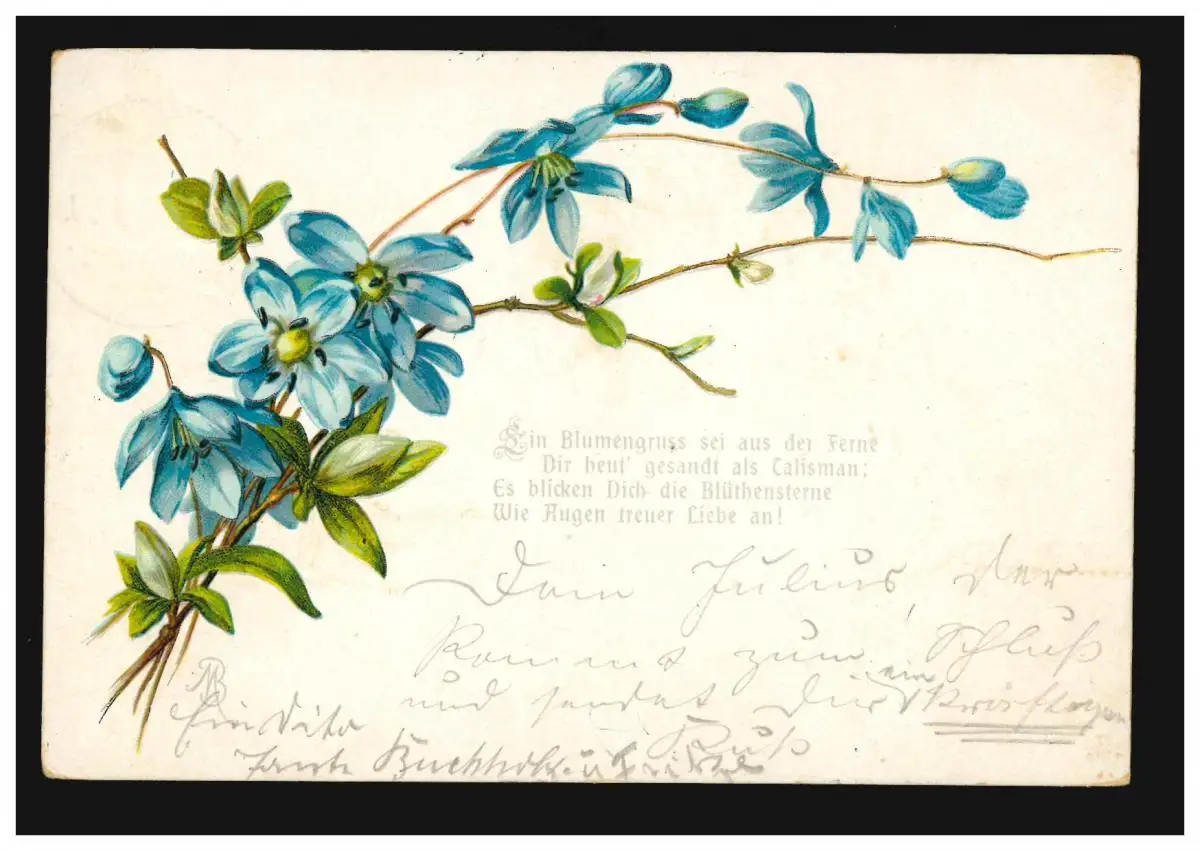 Ein Blumengruss sei aus der Ferne
Dir heut' gesandt als Talisman:
Es blicken Dich die Blüthensterne
Wie Augen treuer Liebe an!
Dein Julius, der
kommt zum Schluß
und sendet Dir ein kräftigen
Kuß
Ein Dito
Tante Buchholz u.